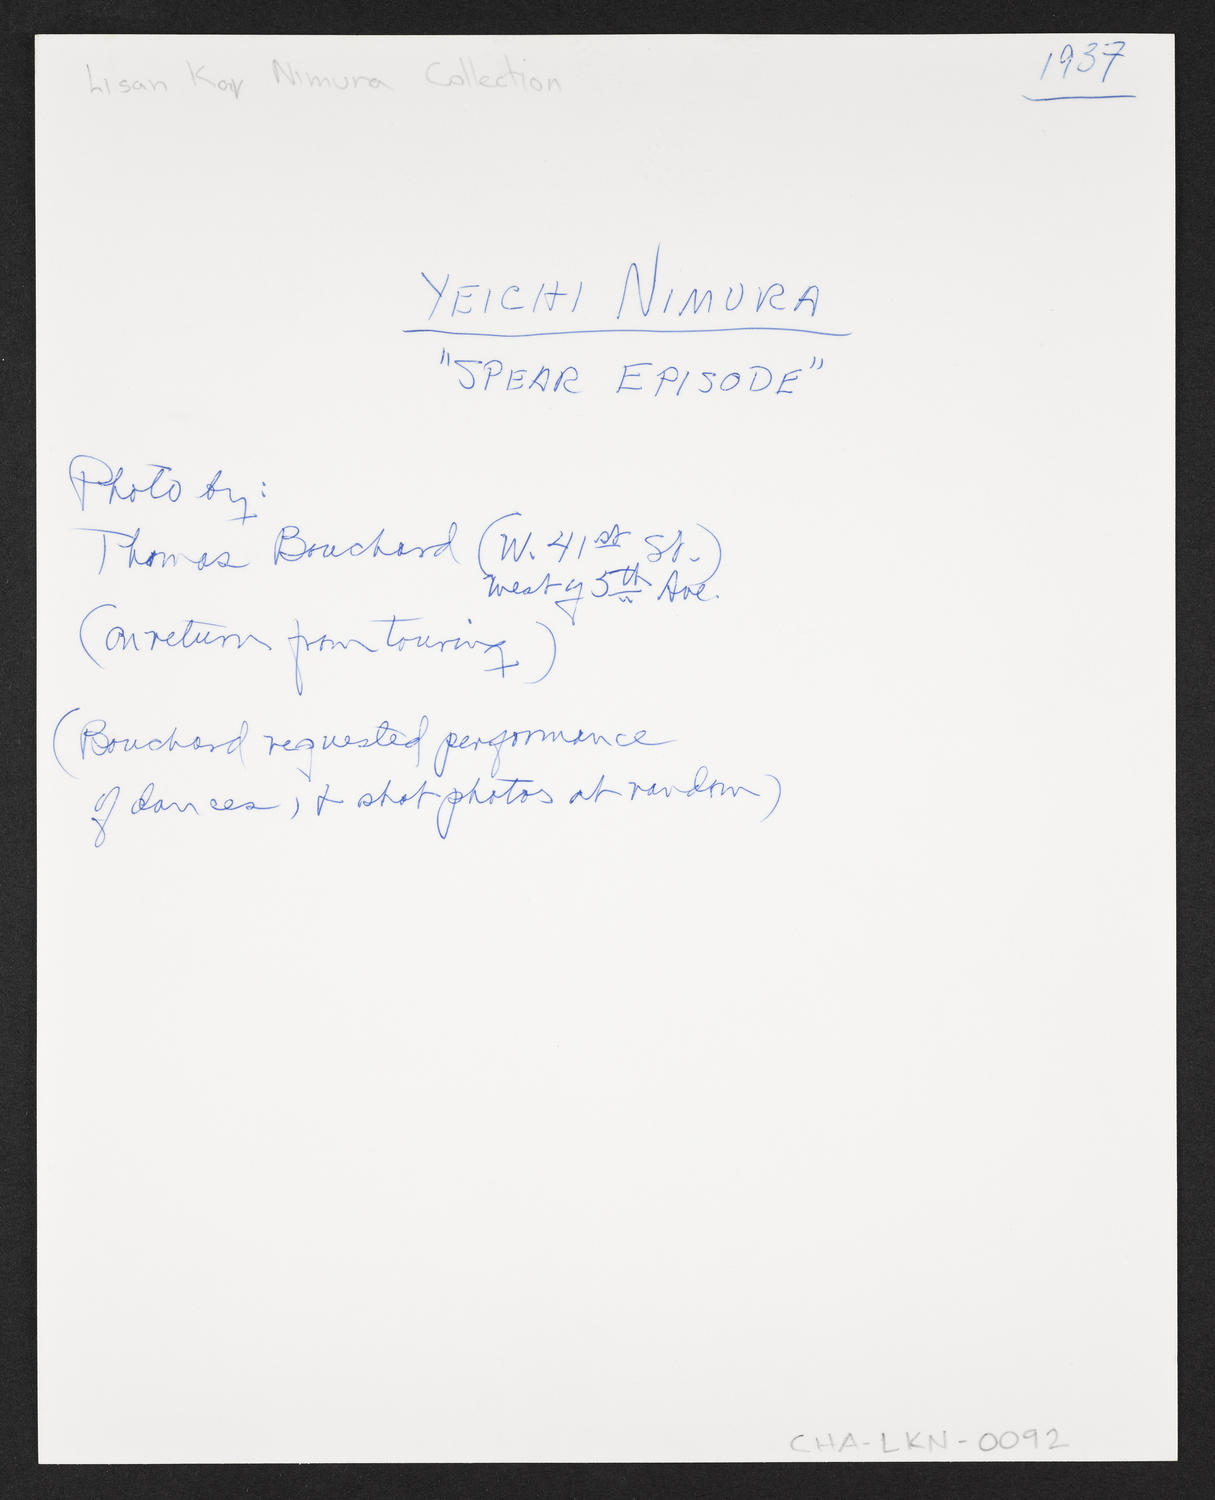 Lisan Kay Nimura Collection
1937
YEICHI NIMURA
"SPEAR EPISODE"
Photo by:
Thomas Bouchard (W. 41st St.)
West of 5th Ave.
(on return from touring)
(Bouchard requested performance
of dances, & shot photos at random)
CHA-LKN-0092